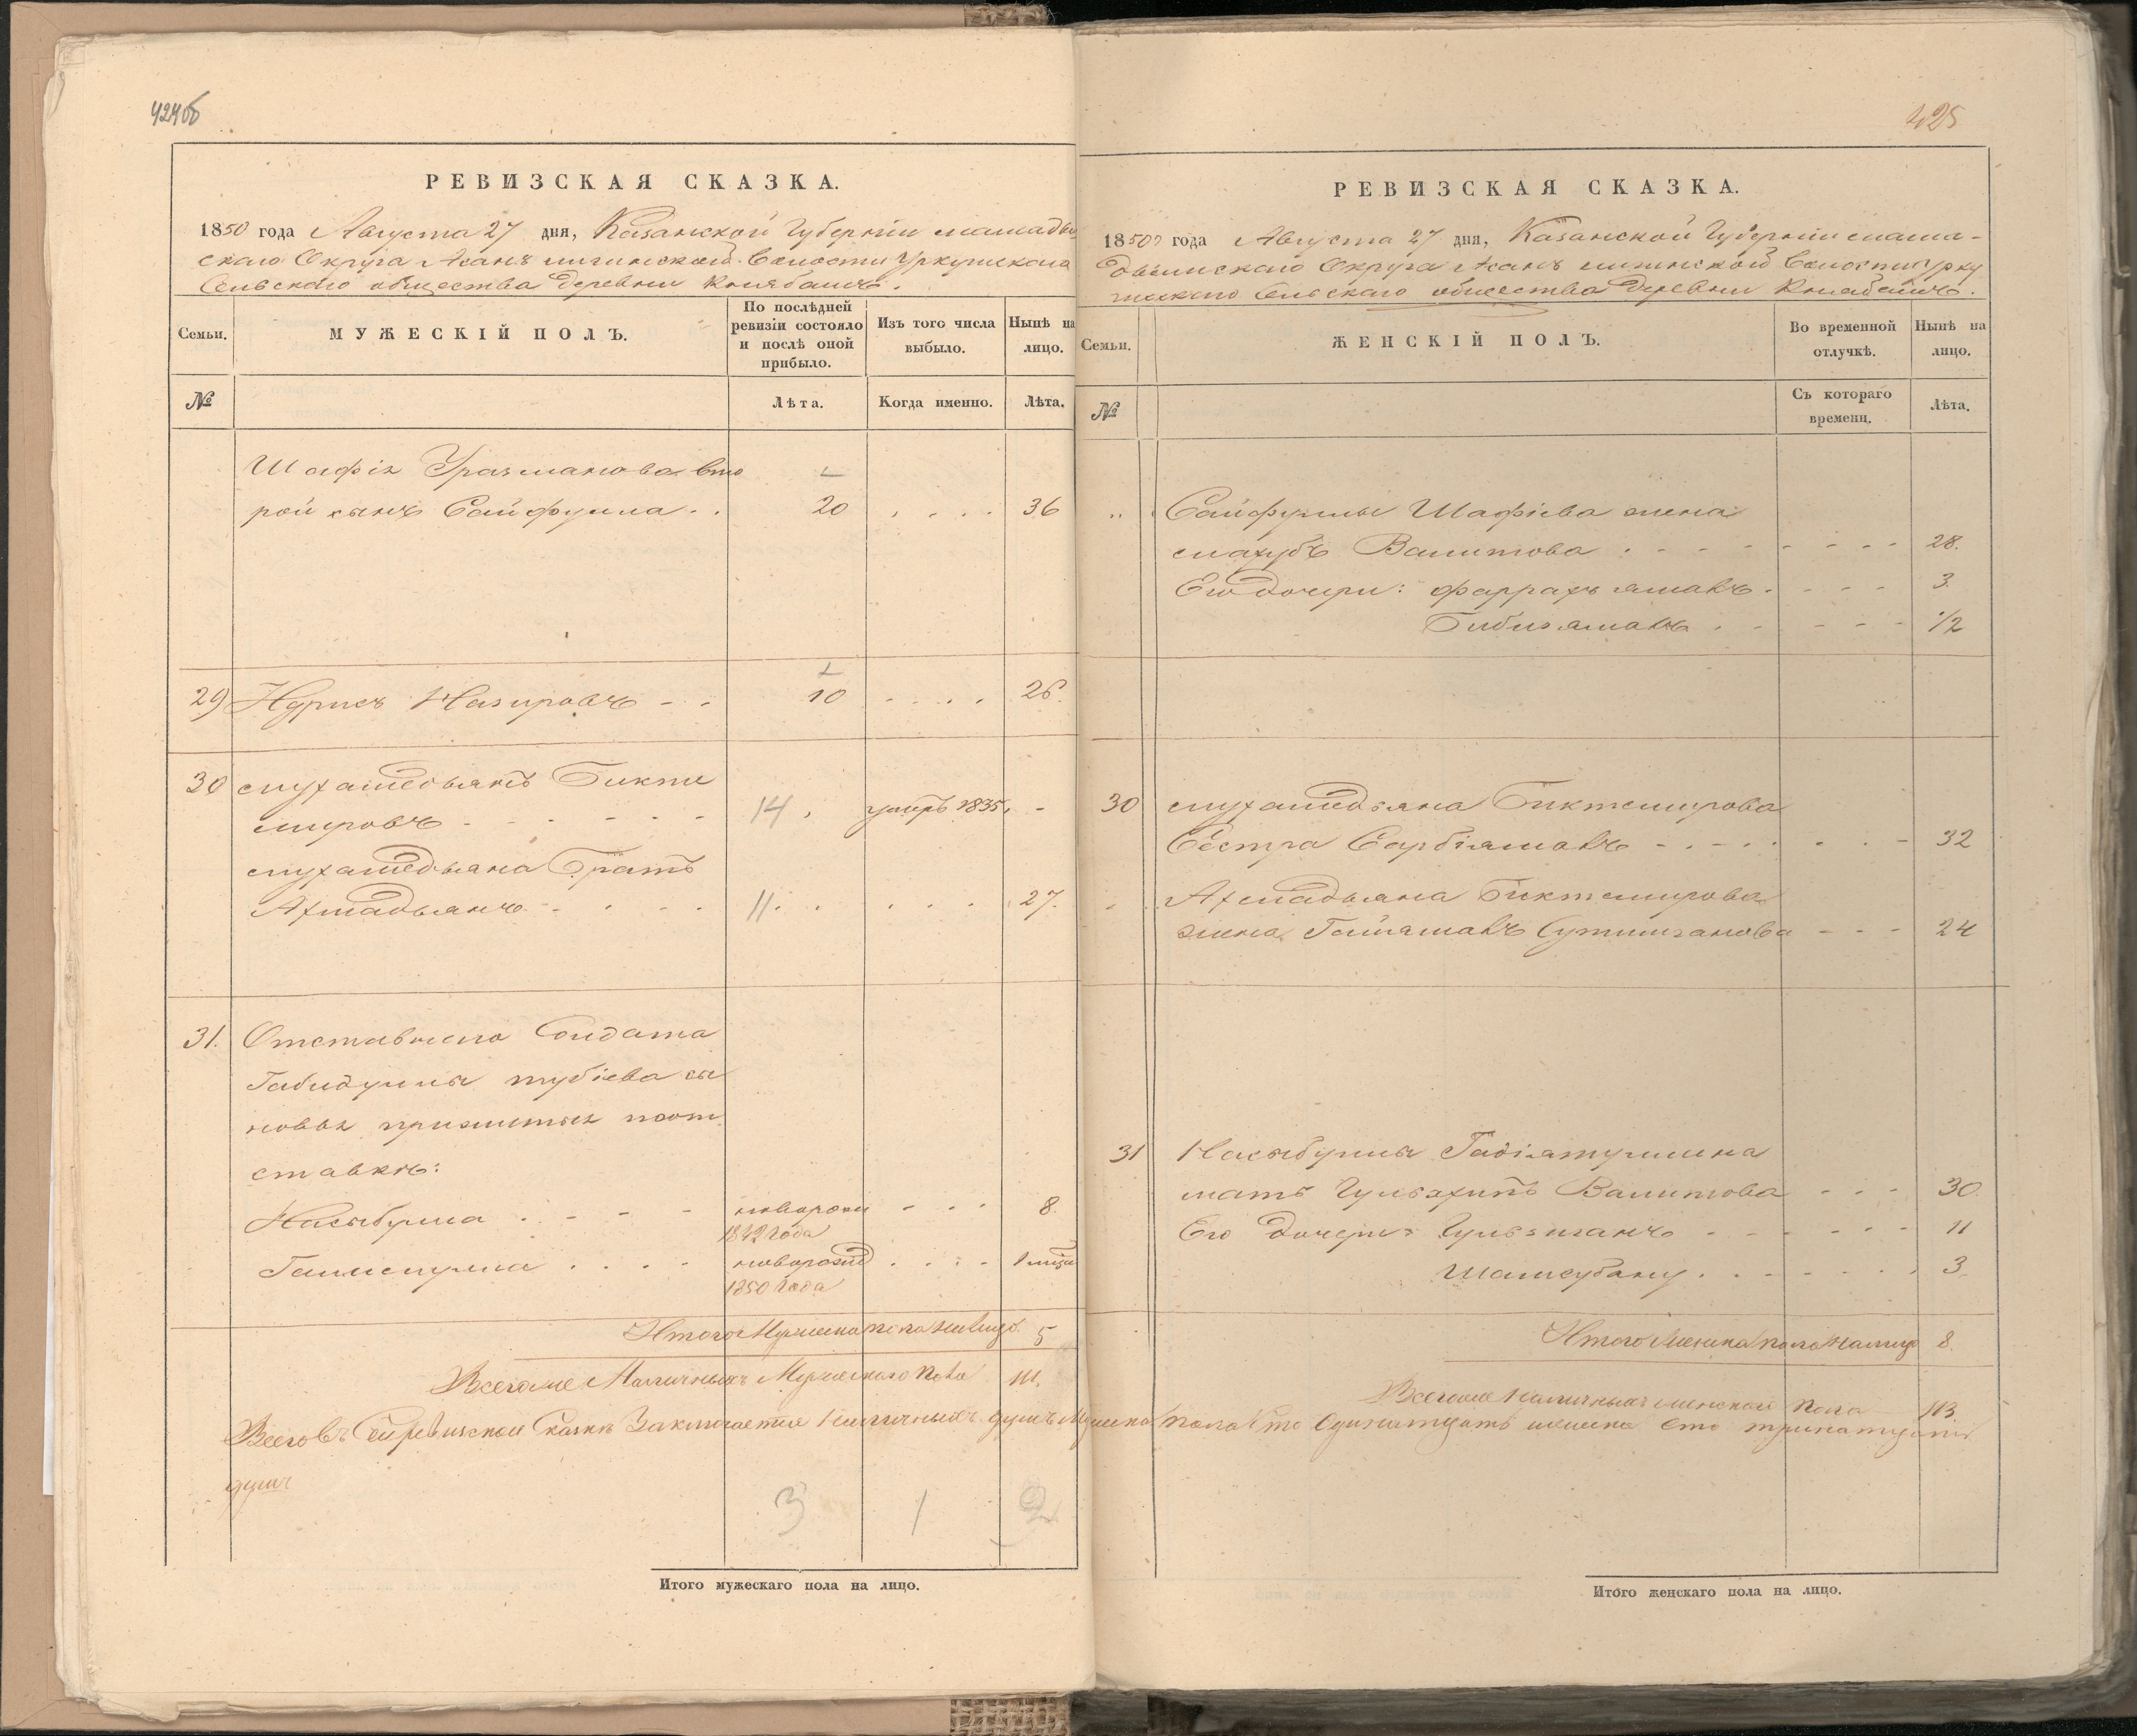 424об
РЕВИЗСКАЯ СКАЗКА.
1850 года Августа 27 дня, Казанской Губерніи мамады
скаго Округа Асанъ Волости Уркушскаго
Сельскаго общества деревни
Семьи.
МУЖЕСКІЙ ПОЛЪ.
По послѣдней ревизіи состояло и послѣ оной прибыло.
Изъ того числа выбыло.
Нынѣ на лицо.
№
Лѣта.
Когда именно.
Лѣта.
Шафіка Уразманова вто
рой сынъ Сайфулла . . 20 . . . . 36
29 Идрисъ Назировъ - - 10 . . . . 26.
30 мухаметьянъ Бикти
мировъ - - - - - 14. умеръ 1835. -
мухаметьяна Братъ
Ахмадьянъ - . . . 11. . . . . 27.
31. Отставнаго Солдата
Габидуллы сы
новья прижитыя поот
ставкѣ:
Насыбулла . - - - новорожд - - - 8.
1842 года
. . . . новорожд . . . . 1 мѣся
1850 года
Итого Мужеска пола на лицо. 5
Всего же Наличныхъ Мужескаго пола 111.
Всего въ сей ревизской сказкѣ Заключается Наличныхъ душъ Мужеска пола Сто Одинатцать женска сто тринатцать
душъ
3 1 2
Итого мужескаго пола на лицо.
425
РЕВИЗСКАЯ СКАЗКА.
1850 года Августа 27 дня, Казанской Губерніи мама-
дышскаго Округа Асанъ Волости Урку
шскаго Сельскаго общества деревни
Семьи.
ЖЕНСКІЙ ПОЛЪ.
Во временной отлучкѣ.
Нынѣ на лицо.
№
Съ котораго времени.
Лѣта.
Сайфуллы Шафіева жена
махубъ Валитова . - - - - - - 28.
Его дочери: фаррахъ ямалъ . - - - 3.
Бибиямалъ . - - - - 1/2
30 мухаметьяна Биктемирова
Сестра Сарбіямалъ - . - . . . - 32
Ахмадьяна Биктемирова
жена - - - 24
31 Насыбуллы
мать Валитова - - - 30.
Его дочери: - - - - - 11
Шамсубану . . - - . . . 3.
Итого женска пола на лицо 8.
Всего же Наличныхъ женскаго пола 113
Итого женскаго пола на лицо.